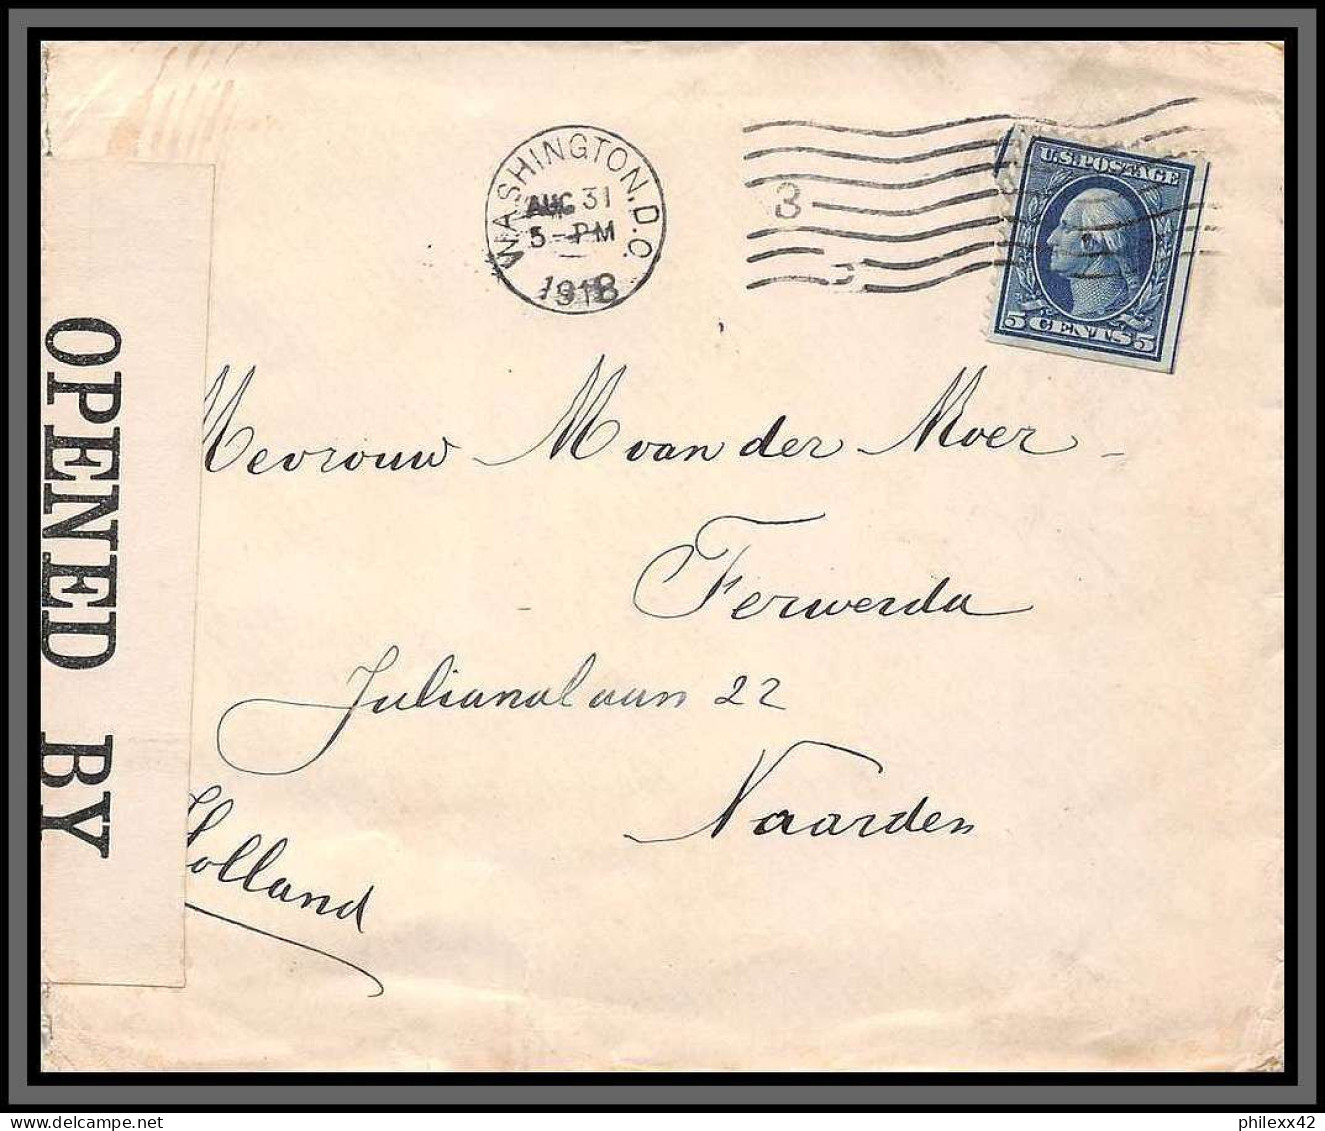 WASHINGTON, D.C.
AUG 31
5-PM
1918
3
U.S. POSTAGE
5 CENTS 5
OPENED BY
Mevrouw M van der Moer -
Ferwerda
Julianalaan 22
Naarden
Holland
philexx42